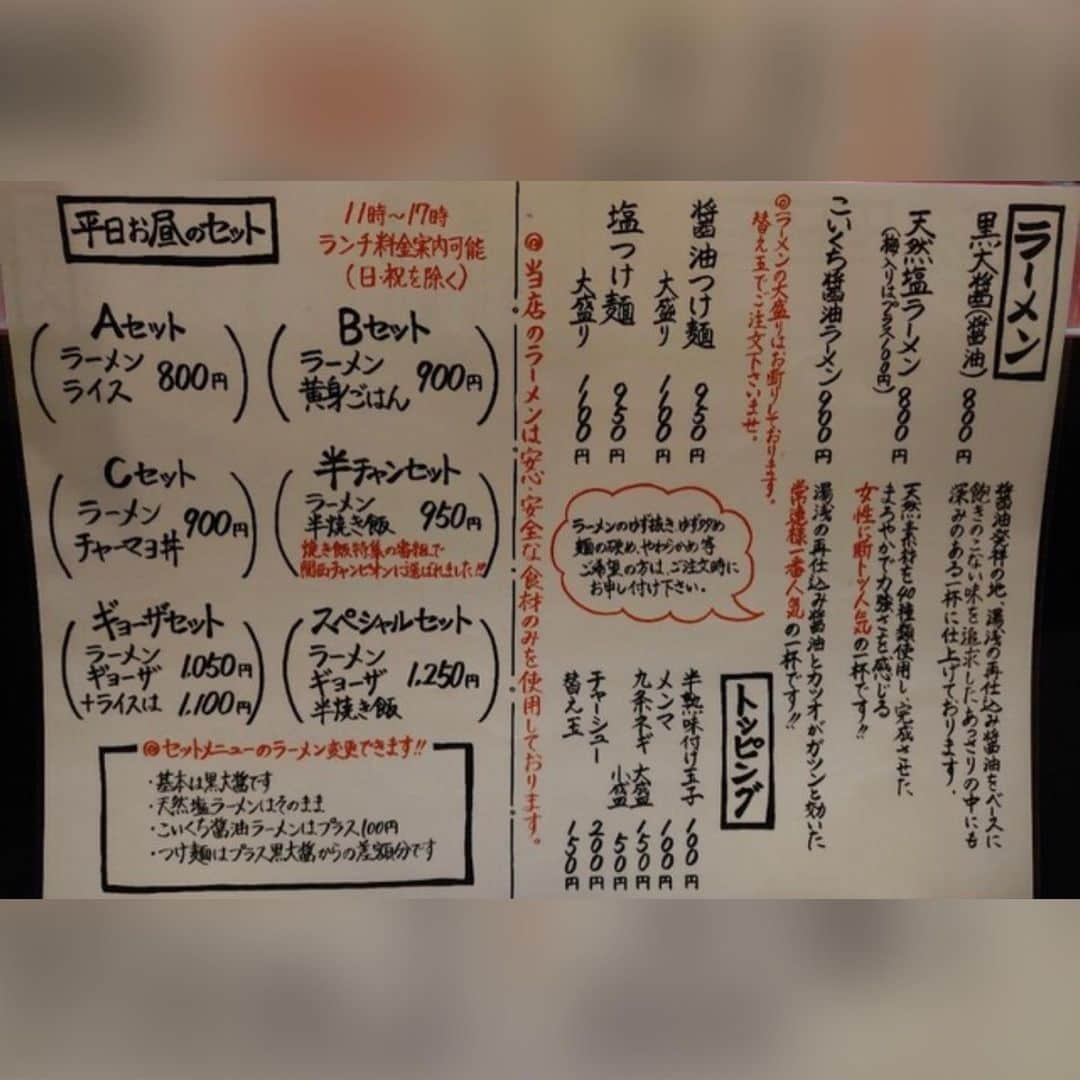 ラーメン
黒大醤(醤油) 800円
醤油発祥の地、湯浅の再仕込み醤油をベースに
飽きのこない味を追求したあっさりの中にも
深みのある一杯に仕上げております。
天然塩ラーメン 800円
(梅入りはプラス100円)
天然素材を40種類使用し、完成させた
まろやかで力強さを感じる
女性に断トツ人気の一杯です!!
こいくち醤油ラーメン 900円
湯浅の再仕込み醤油とカツオがガツンと効いた
常連様一番人気の一杯です!!
◎ラーメンの大盛りはお断りしております。
替え玉でご注文下さいませ。
醤油つけ麺 950円
大盛り 1100円
塩つけ麺 950円
大盛り 1100円
ラーメンのゆず抜き ゆず多め
麺の硬め、やわらかめ 等
ご希望の方は、ご注文時に
お申し付け下さい。
トッピング
半熟味付け玉子 100円
メンマ 100円
九条ネギ 大盛 150円
小盛 50円
チャーシュー 200円
替え玉 150円
◎当店のラーメンは安心・安全な食材のみを使用しております。
平日お昼のセット
11時〜17時
ランチ料金案内可能
(日・祝を除く)
Aセット
ラーメン
ライス 800円
Bセット
ラーメン
黄身ごはん 900円
Cセット
ラーメン
チャーマヨ丼 900円
半チャンセット
ラーメン
半焼き飯 950円
焼き飯特集の番組で
関西チャンピオンに選ばれました!!
ギョーザセット
ラーメン
ギョーザ 1.050円
+ライスは 1.100円
スペシャルセット
ラーメン
ギョーザ 1.250円
半焼き飯
◎セットメニューのラーメン変更できます!!
・基本は黒大醤です
・天然塩ラーメンはそのまま
・こいくち醤油ラーメンはプラス100円
・つけ麺はプラス黒大醤からの差額分です